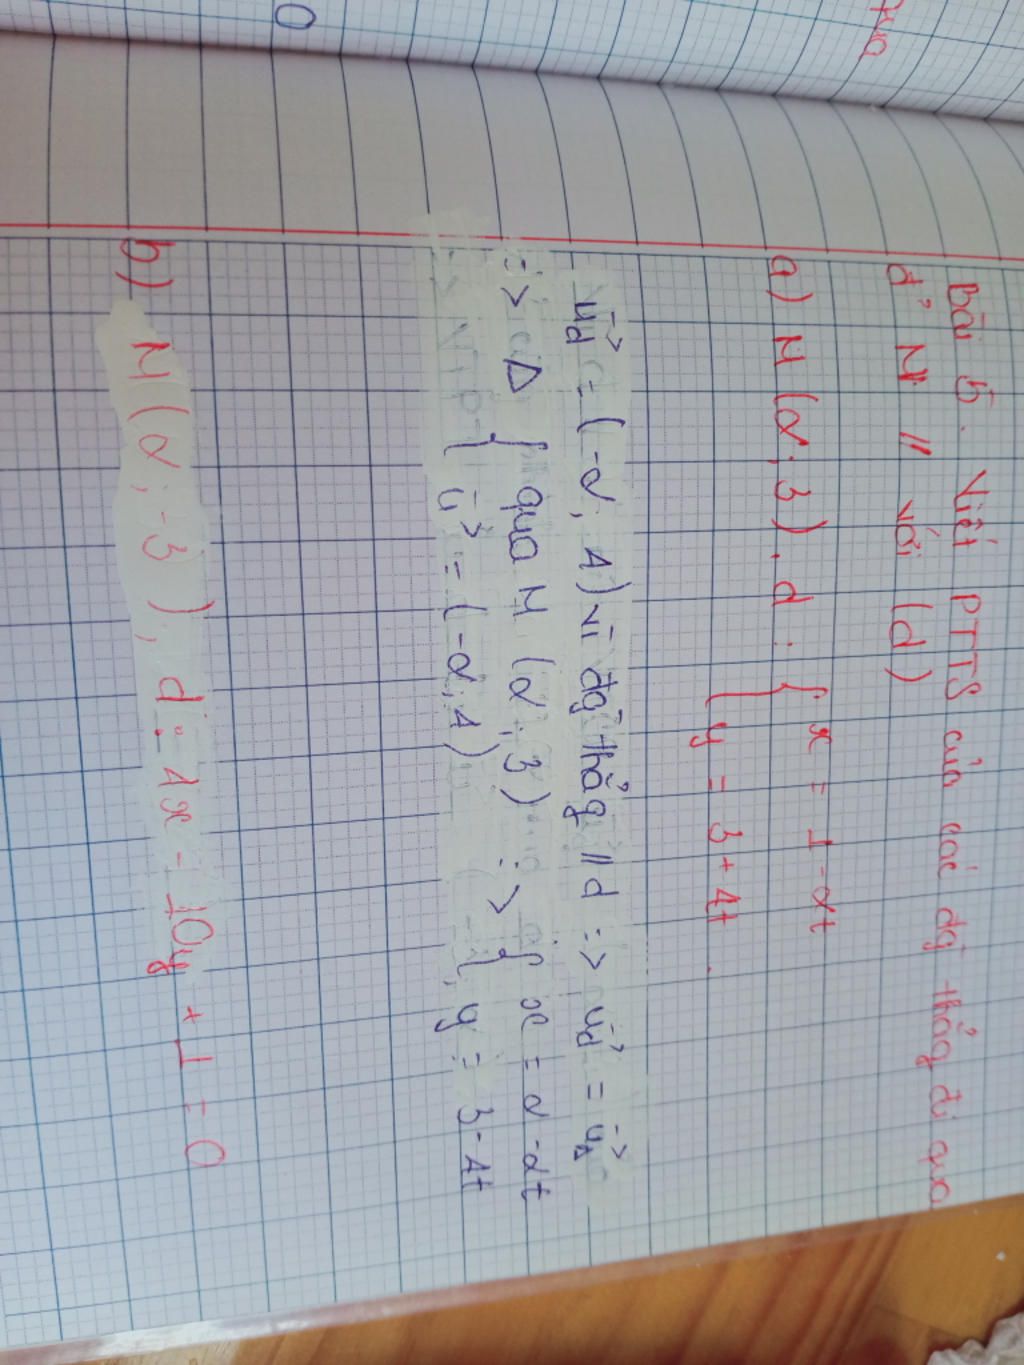 qua
0
Bài 5. Viết PTTS của các đg thẳg đi qua
đ' M // với (d)
a) M (2; 3), d : { x = 1 - 2t
{ y = 3 + 4t.
u→d = (-2, 4) vì đg thẳg // d => u→d = u→Δ
=> Δ { qua M (2; 3) => { x = 2 - 2t
{ u→ = (-2, 4) { y = 3 - 4t
b) M (2; -3), d: 4x - 10y + 1 = 0